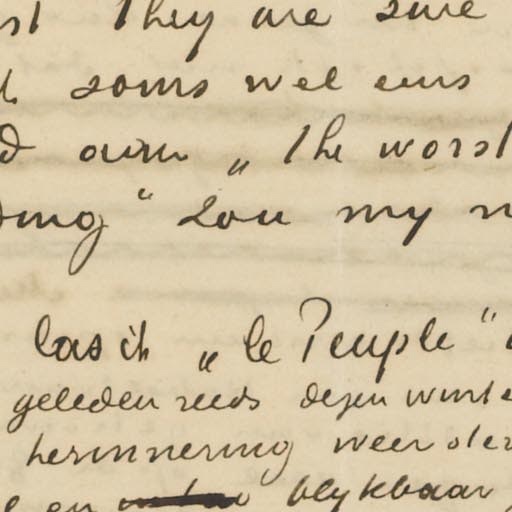 They are sure
soms wel eens
" the worst
" zou my
las ik " le Peuple "
geleden reeds dezen winte
herinnering weer
en blykbaar